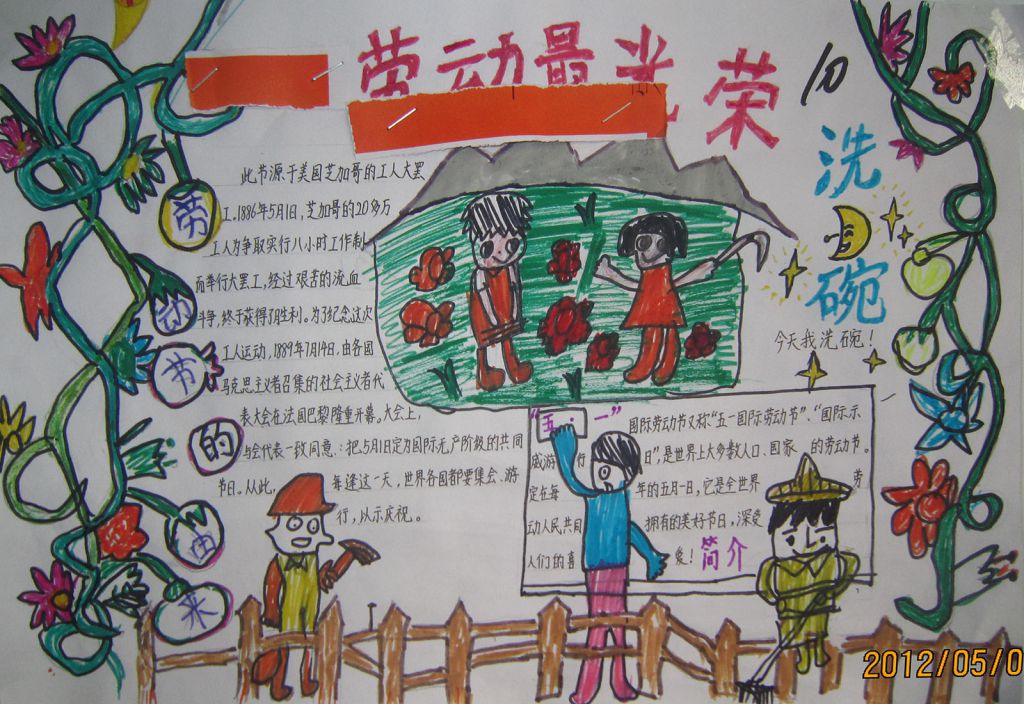 劳动最光荣
洗碗
今天我洗碗！
劳动节的由来
此节源于美国芝加哥的工人大罢
工。1886年5月1日，芝加哥的20多万
工人为争取实行八小时工作制
而举行大罢工，经过艰苦的流血
斗争，终于获得了胜利。为了纪念这次
工人运动，1889年7月14日，由各国
马克思主义者召集的社会主义者代
表大会在法国巴黎隆重开幕。大会上，
与会代表一致同意：把5月1日定为国际无产阶级的共同
节日。从此，每逢这一天，世界各国都要集会、游
行，以示庆祝。。
“五·一”
国际劳动节又称“五一国际劳动节”、“国际示
威游行日”，是世界上大多数人口、国家的劳动节。
定在每年的五月一日，它是全世界劳
动人民共同拥有的美好节日，深爱
人们的喜爱！
简介
2012/05/0